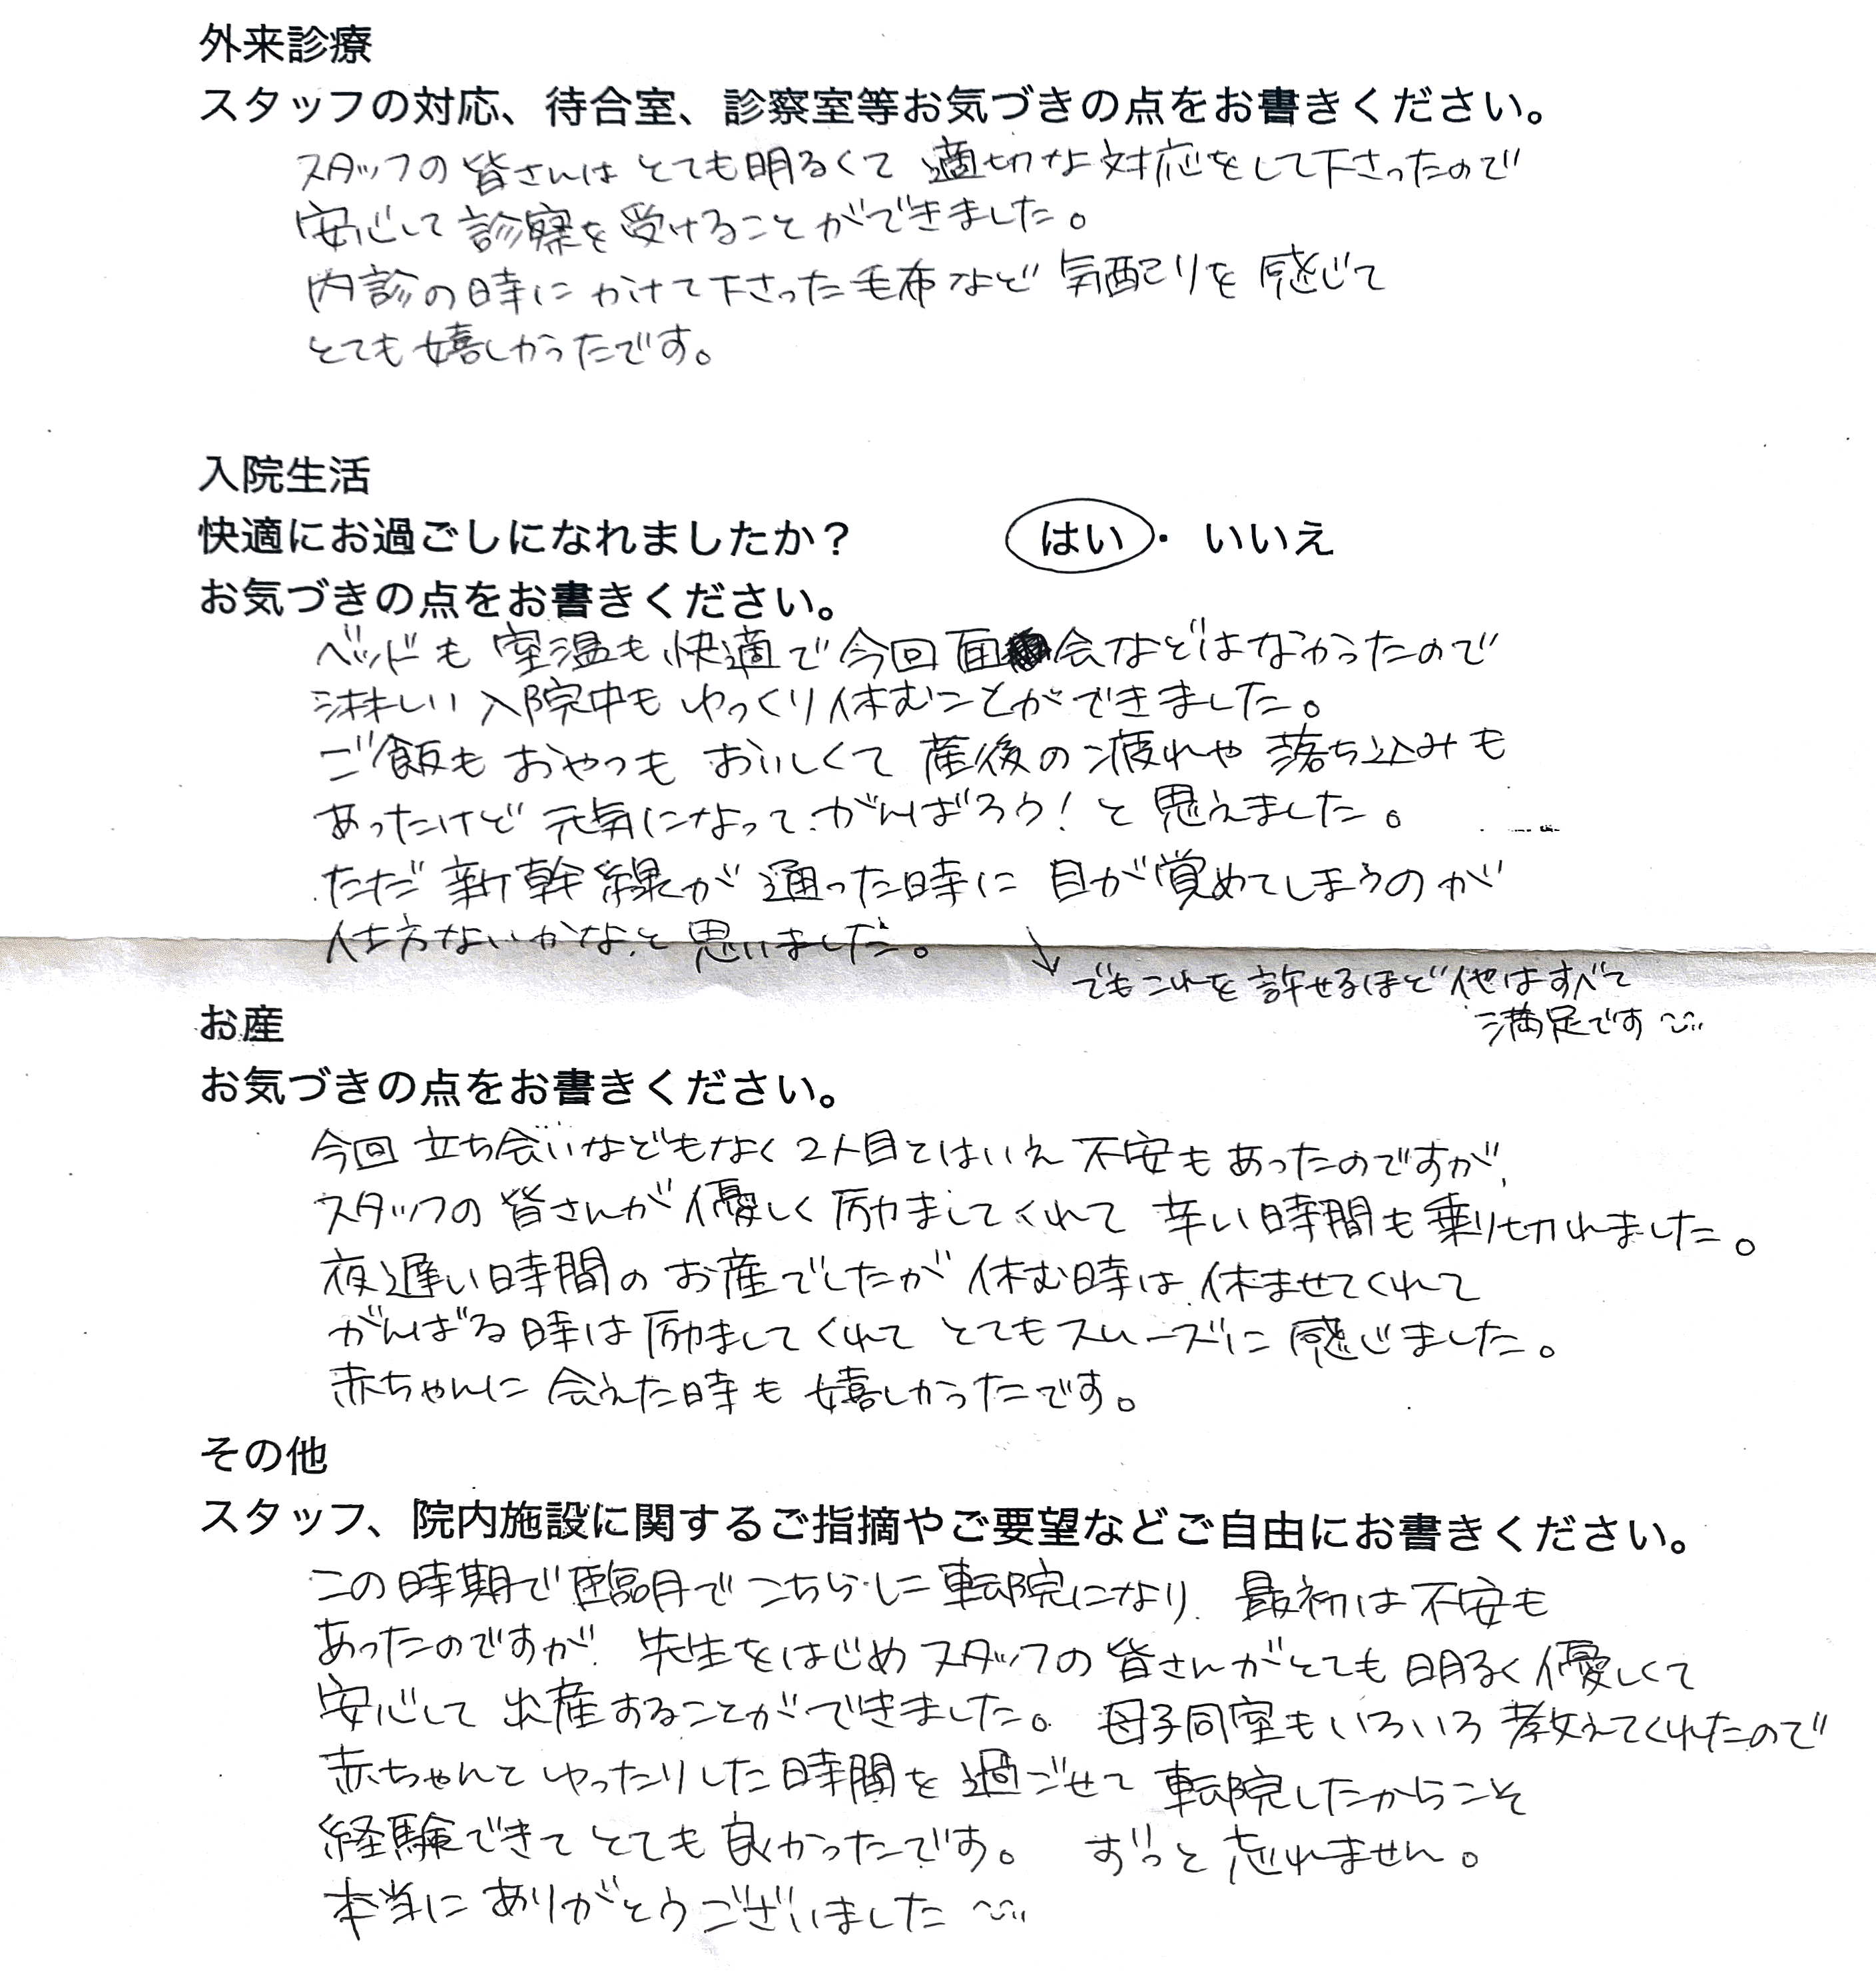 外来診療
スタッフの対応、待合室、診察室等お気づきの点をお書きください。
スタッフの皆さんはとても明るくて適切な対応をして下さったので
安心して診察を受けることができました。
内診の時にかけて下さった毛布など気配りを感じて
とても嬉しかったです。
入院生活
快適にお過ごしになれましたか？ はい・いいえ
お気づきの点をお書きください。
ベッドも室温も快適で今回面会などはなかったので
淋しい入院中もゆっくり休むことができました。
ご飯もおやつもおいしくて産後の疲れや落ち込みも
あったけど元気になってがんばろう！と思えました。
ただ新幹線が通った時に目が覚めてしまうのが
仕方ないかなと思いました。
↘でもこれを許せるほど他はすべて
満足です
お産
お気づきの点をお書きください。
今回立ち会いなどもなく2人目とはいえ不安もあったのですが、
スタッフの皆さんが優しく励ましてくれて辛い時間も乗り切れました。
夜遅い時間のお産でしたが休む時は休ませてくれて
がんばる時は励ましてくれてとてもスムーズに感じました。
赤ちゃんに会えた時も嬉しかったです。
その他
スタッフ、院内施設に関するご指摘やご要望などご自由にお書きください。
この時期で臨月でこちらに転院になり、最初は不安も
あったのですが、先生をはじめスタッフの皆さんがとても明るく優しくて
安心して出産することができました。母子同室もいろいろ教えてくれたので
赤ちゃんとゆったりした時間を過ごせて転院したからこそ
経験できてとても良かったです。ずっと忘れません。
本当にありがとうございました